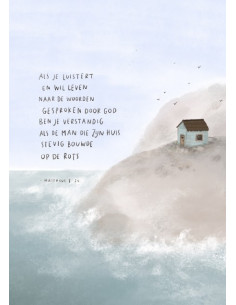 ALS JE LUISTERT
EN WIL LEVEN
NAAR DE WOORDEN
GESPROKEN DOOR GOD
BEN JE VERSTANDIG
ALS DE MAN DIE ZIJN HUIS
STEVIG BOUWDE
OP DE ROTS